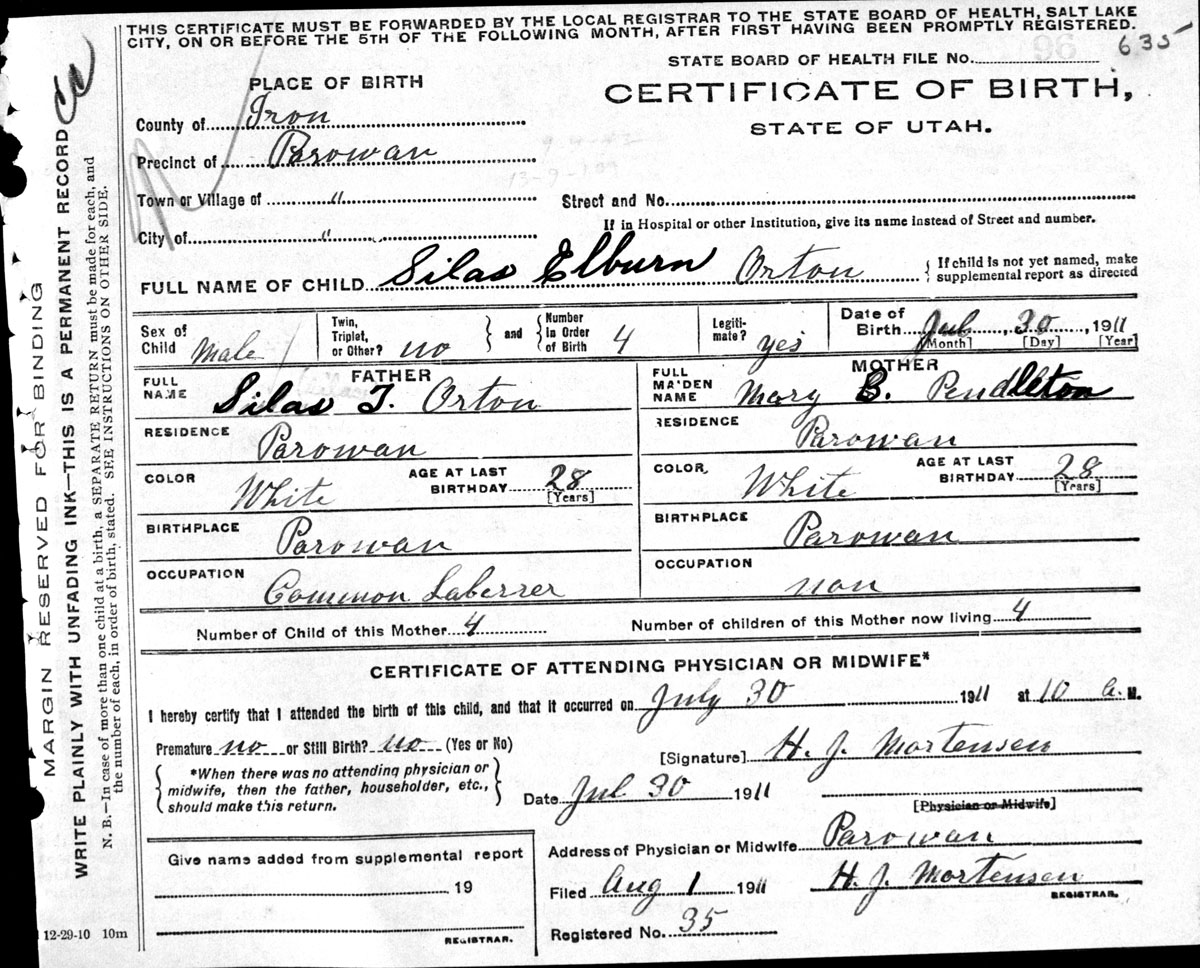 THIS CERTIFICATE MUST BE FORWARDED BY THE LOCAL REGISTRAR TO THE STATE BOARD OF HEALTH, SALT LAKE
CITY, ON OR BEFORE THE 5TH OF THE FOLLOWING MONTH, AFTER FIRST HAVING BEEN PROMPTLY REGISTERED.
96 635
STATE BOARD OF HEALTH FILE No.
PLACE OF BIRTH
CERTIFICATE OF BIRTH,
STATE OF UTAH.
County of Iron
Precinct of Parowan
Town or Village of "
Street and No.
If in Hospital or other Institution, give its name instead of Street and number.
City of "
FULL NAME OF CHILD Silas Elburn Orton { If child is not yet named, make
supplemental report as directed
Sex of Child Male
Twin, Triplet, or Other? no } and { Number in Order of Birth 4
Legiti-mate? yes
Date of Birth Jul, 30, 1911
[Month] [Day] [Year]
FATHER
FULL NAME Silas T. Orton
RESIDENCE Parowan
COLOR White AGE AT LAST BIRTHDAY 28
[Years]
BIRTHPLACE Parowan
OCCUPATION Common Laberrer
MOTHER
FULL MAIDEN NAME Mary B. Pendleton
RESIDENCE Parowan
COLOR White AGE AT LAST BIRTHDAY 28
[Years]
BIRTHPLACE Parowan
OCCUPATION non
Number of Child of this Mother 4 Number of children of this Mother now living 4
CERTIFICATE OF ATTENDING PHYSICIAN OR MIDWIFE*
I hereby certify that I attended the birth of this child, and that it occurred on July 30 1911 at 10 a. M.
Premature no or Still Birth? no (Yes or No)
[Signature] H. J. Mortensen
{ *When there was no attending physician or
midwife, then the father, householder, etc.,
should make this return. }
Date Jul 30 1911
[Physician or Midwife]
Address of Physician or Midwife Parowan
Give name added from supplemental report
19
REGISTRAR.
Filed Aug 1 1911 H. J. Mortensen
REGISTRAR.
Registered No. 35
12-29-10 10m
MARGIN RESERVED FOR BINDING
WRITE PLAINLY WITH UNFADING INK—THIS IS A PERMANENT RECORD
N. B.—In case of more than one child at a birth, a SEPARATE RETURN must be made for each, and
the number of each, in order of birth, stated. SEE INSTRUCTIONS ON OTHER SIDE.